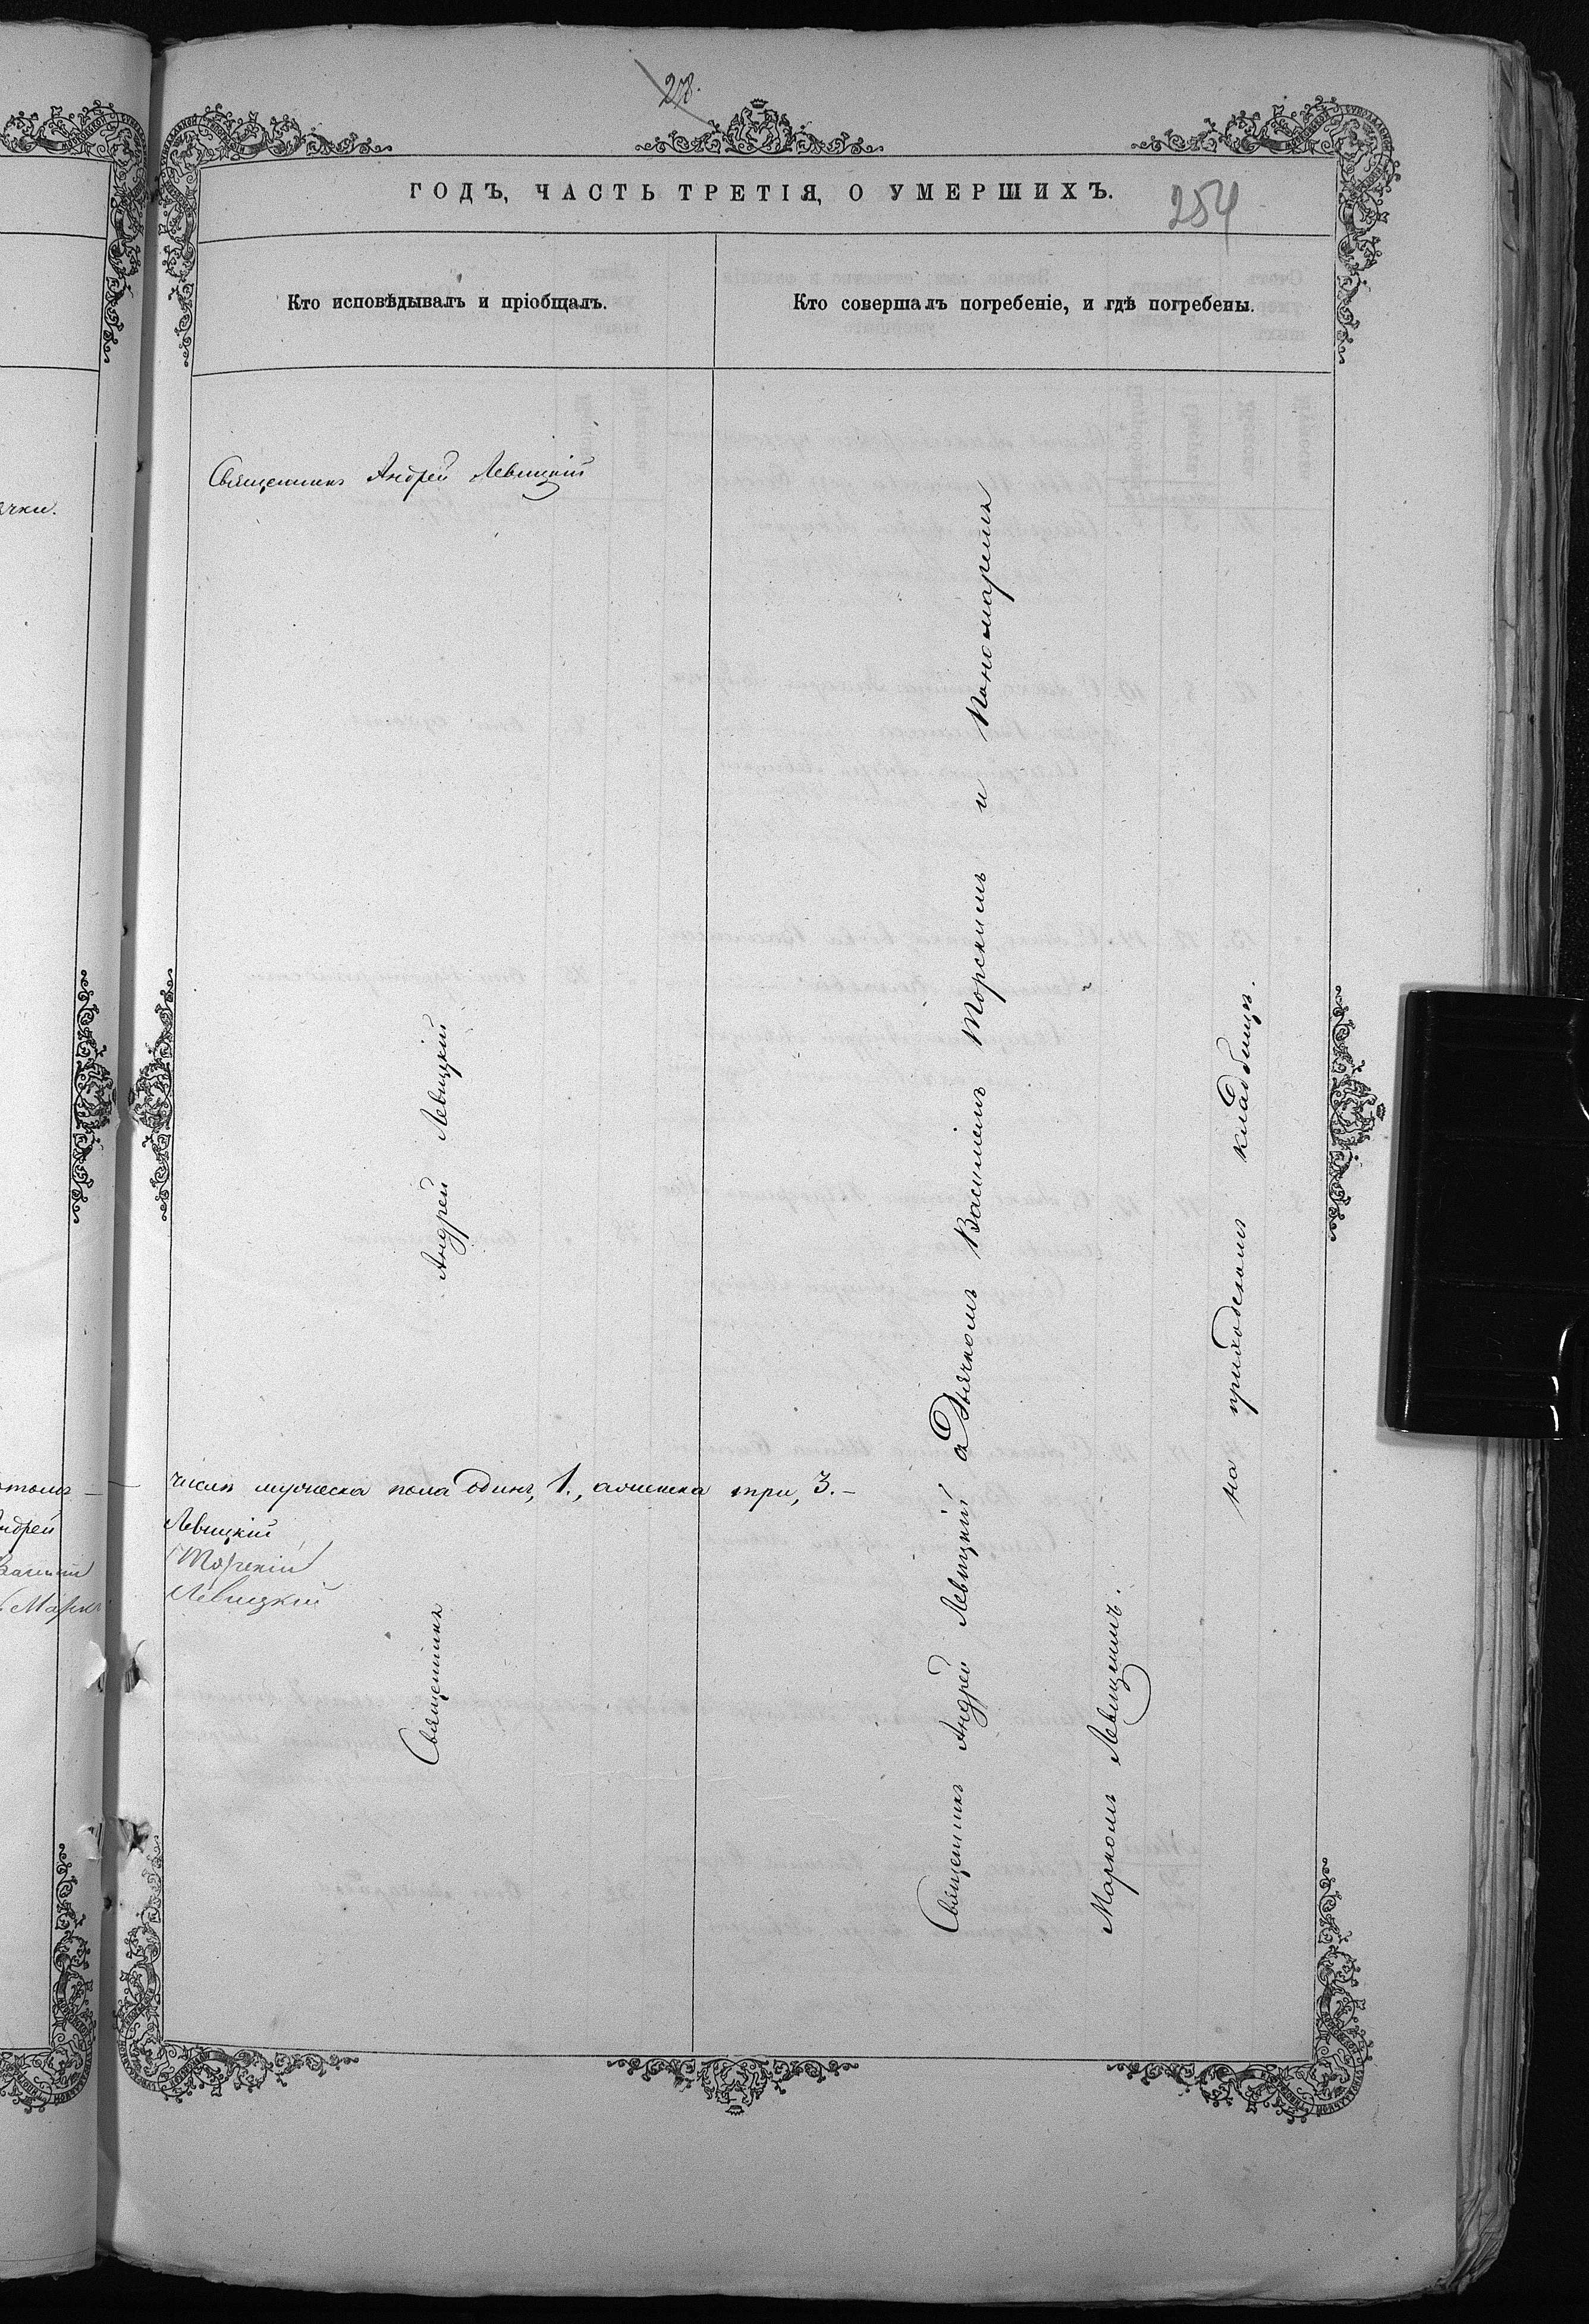 28.
ГОДЪ, ЧАСТЬ ТРЕТІЯ, О УМЕРШИХЪ.
254
Кто исповѣдывалъ и пріобщалъ.
Кто совершалъ погребеніе, и гдѣ погребены.
Священникъ Андрей Левицкій
Священникъ Андрей Левицкій
числѣ мужеска пола одинъ, 1., а женска три, 3.–
Левицкій
Торскій
Левицкій
Священникъ Андрей Левицкій съ Дьячкомъ Василіемъ Торскимъ и Пономаремъ
Маркомъ Левицкимъ.
на приходскомъ кладбищѣ.
ячки.
Андрей
Василій